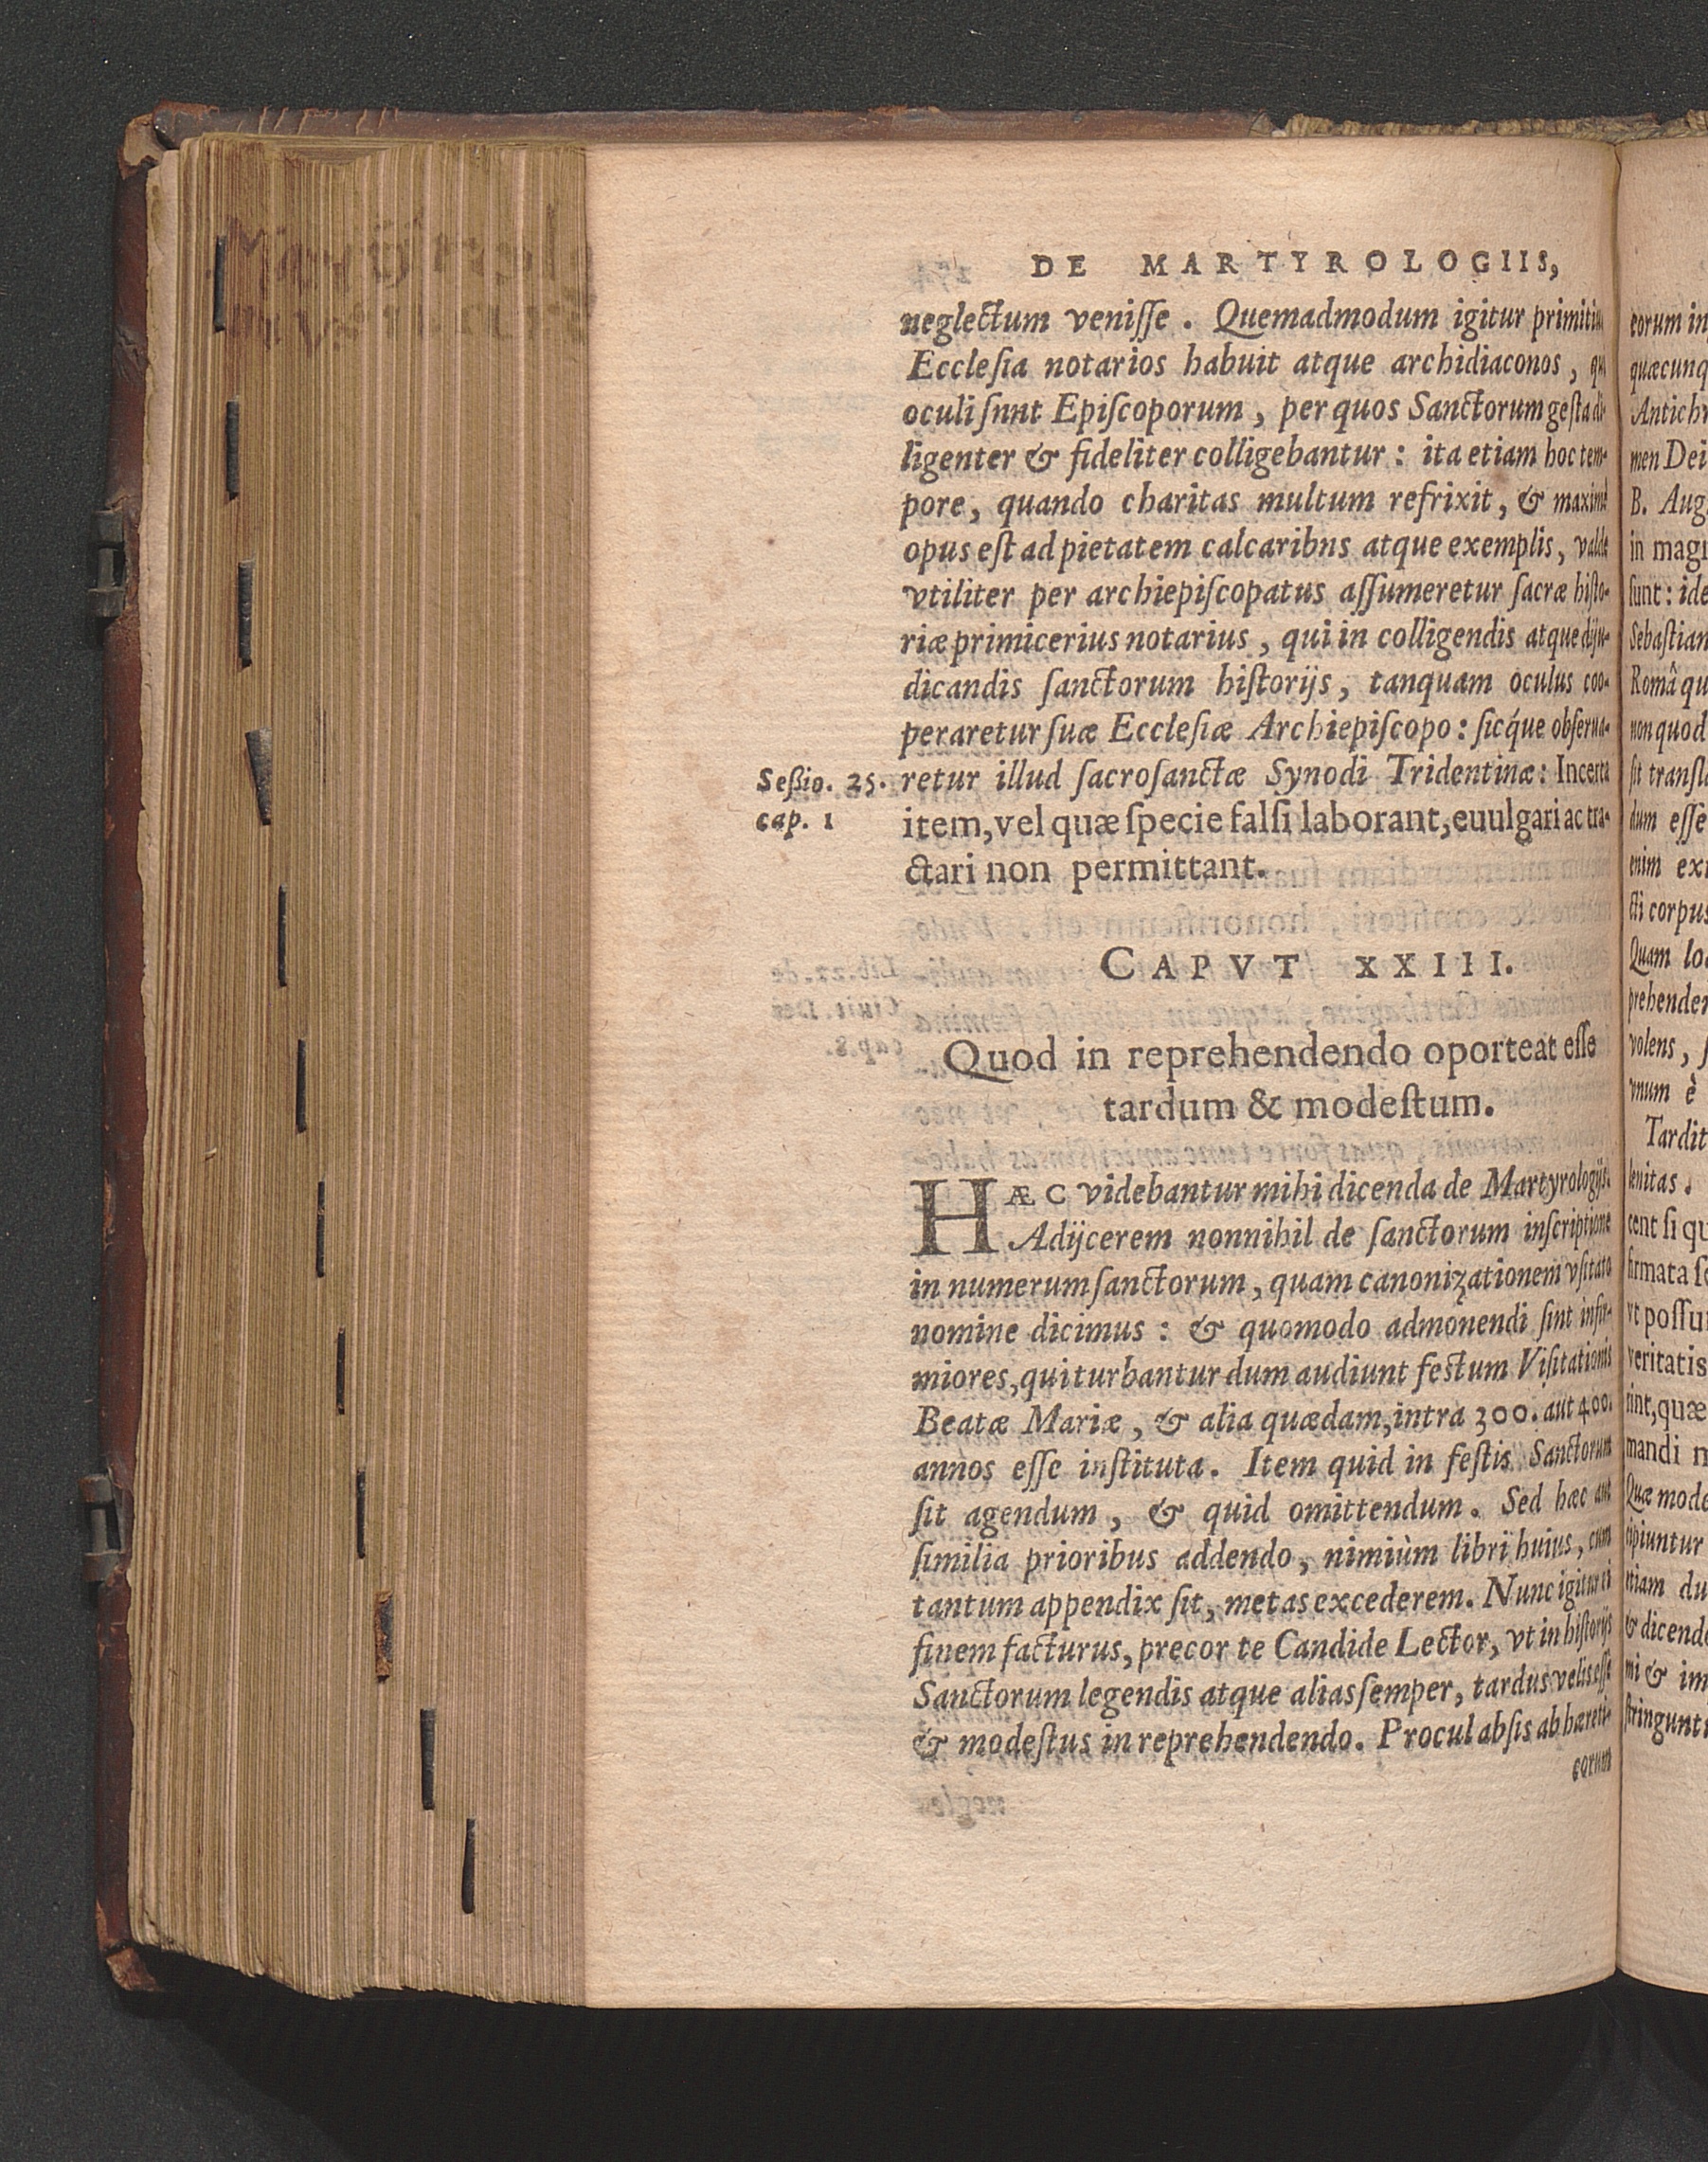 DE MARTYROLOGIIS,
neglectum veniſſe. Quemadmodum igitur
Eccleſia notarios habuit atque archidiaconos,
oculi ſnnt Epiſcoporum, per quos Sanctorum geſta di-
ligenter & fideliter colligebantur: ita etiam hoc tem-
pore, quando charitas multum refrixit, &
opus eſt ad pietatem calcaribns atque exemplis, valde
vtiliter per archiepiſcopatus aſſumeretur ſacræ hiſto-
riæ primicerius notarius, qui in colligendis atque dijn-
dicandis ſanctorum hiſtorijs, tanquam oculus coo-
peraretur ſuæ Eccleſiæ Archiepiſcopo: ſicq́ue obſerua-
Seßio. 25.
cap. 1
retur illud ſacroſanctæ Synodi Tridentinæ: Incerta
item, vel quæ ſpecie falſi laborant, euulgari ac tra-
ctari non permittant.
CAPVT XXIII.
Quod in reprehendendo oporteat eſſe
tardum & modeſtum.
HÆC videbantur mihi dicenda de Martyrologijs.
Adijcerem nonnihil de ſanctorum inſcriptione
in numerum ſanctorum, quam canonizationem vſitato
nomine dicimus: & quomodo admonendi ſint infir-
miores, qui turbantur dum audiunt feſtum Viſitationis
Beatæ Mariæ, & alia quædam, intra 300. aut 400.
annos eſſe inſtituta. Item quid in feſtis Sanctorum
ſit agendum, & quid omittendum. Sed hæc aut
ſimilia prioribus addendo, nimiùm libri huius, cum
tantum appendix ſit, metas excederem. Nunc igitur ei
finem facturus, precor te Candide Lector, vt in hiſtorijs
Sanctorum legendis atque alias ſemper, tardus velis eſſe
& modeſtus in reprehendendo. Procul abſis ab hæreti-
corum
eorum in
Antichr
men Dei
B. Aug
in magi
ſunt: ide
Sebaſtian
Româ qu
non quod
ſit tranſla
dum eſſe
enim ex
cti corpus
Quam lo
prehender
volens,
vnum è
Tardit
lenitas.
cent ſi qu
firmata
vt poſſu
veritatis
rint, quæ
mandi
Quæ mode
cipiuntur
etiam du
& dicend
mi & im
ſtringunt